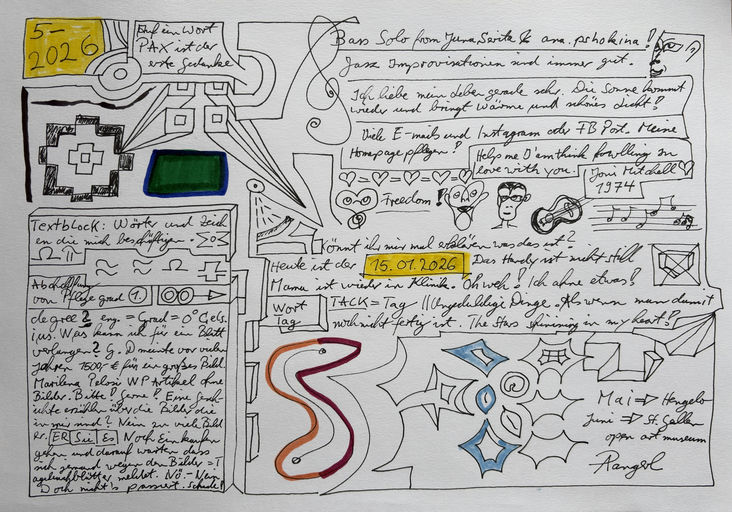 5-
2026
Auf ein Wort
PAX ist der
erste Gedanke
Bass Solo from Juna Serita & ana.pshokina!
Jazz Improvisationen sind immer gut.
Ich liebe mein Leben gerade sehr. Die Sonne kommt
wieder und bringt Wärme und schönes Licht!
Viele E-mails und Instagram oder FB Post. Meine
Homepage pflegen!
Help me I'am think I'm falling in
love with you.
Joni Mitchell
1974
Freedom!
Textblock: Wörter und Zeich
en die mich beschäftigen.
Könnt ihr mir mal erklären was das ist?
Heute ist der 15.01.2026 Das Handy ist nicht still
Mama ist wieder in Klinik. Oh weh! Ich ohne etwas?
Wort
Tag
TACK = Tag || Ungeduldige Dinge. Als wenn man damit
noch nicht fertig ist. The Stars shining in my heart!
Abschaffung
von Pflegegrad 1.
degree 2 eng. = Grad = 0° Cels.
ius. Was kann ich für ein Blatt
verlangen? G. D meinte vor vielen
Jahren 7500,- € für ein großes Bild
Marilena Pelosi WP Artikel ohne
Bilder. Bitte! Gerne! Eine Gesch-
ichte erzählen über die Bilder, die
in mir sind? Nein zu viele Bild
er. ER Sie Es Noch Einkaufen
gehen und darauf warten dass
sich jemand wegen den Bilder = T
agebuchblätter meldet. Nö. - Nein
Doch nichts passiert. Schade!
Mai => Hengelo
Juni => St. Gallen
open art museum
Rangerl